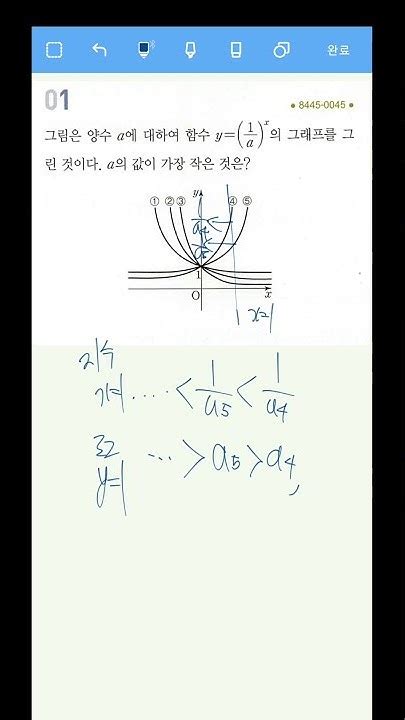 완료
01
● 8445-0045 ●
그림은 양수 a에 대하여 함수 y=(1/a)^x의 그래프를 그
린 것이다. a의 값이 가장 작은 것은?
① ② ③ y ④ ⑤
1/a4
1/a5
1
O x
x=1
지수
x=1 .... < 1/a5 < 1/a4
로그
y=1 ... > a5 > a4,